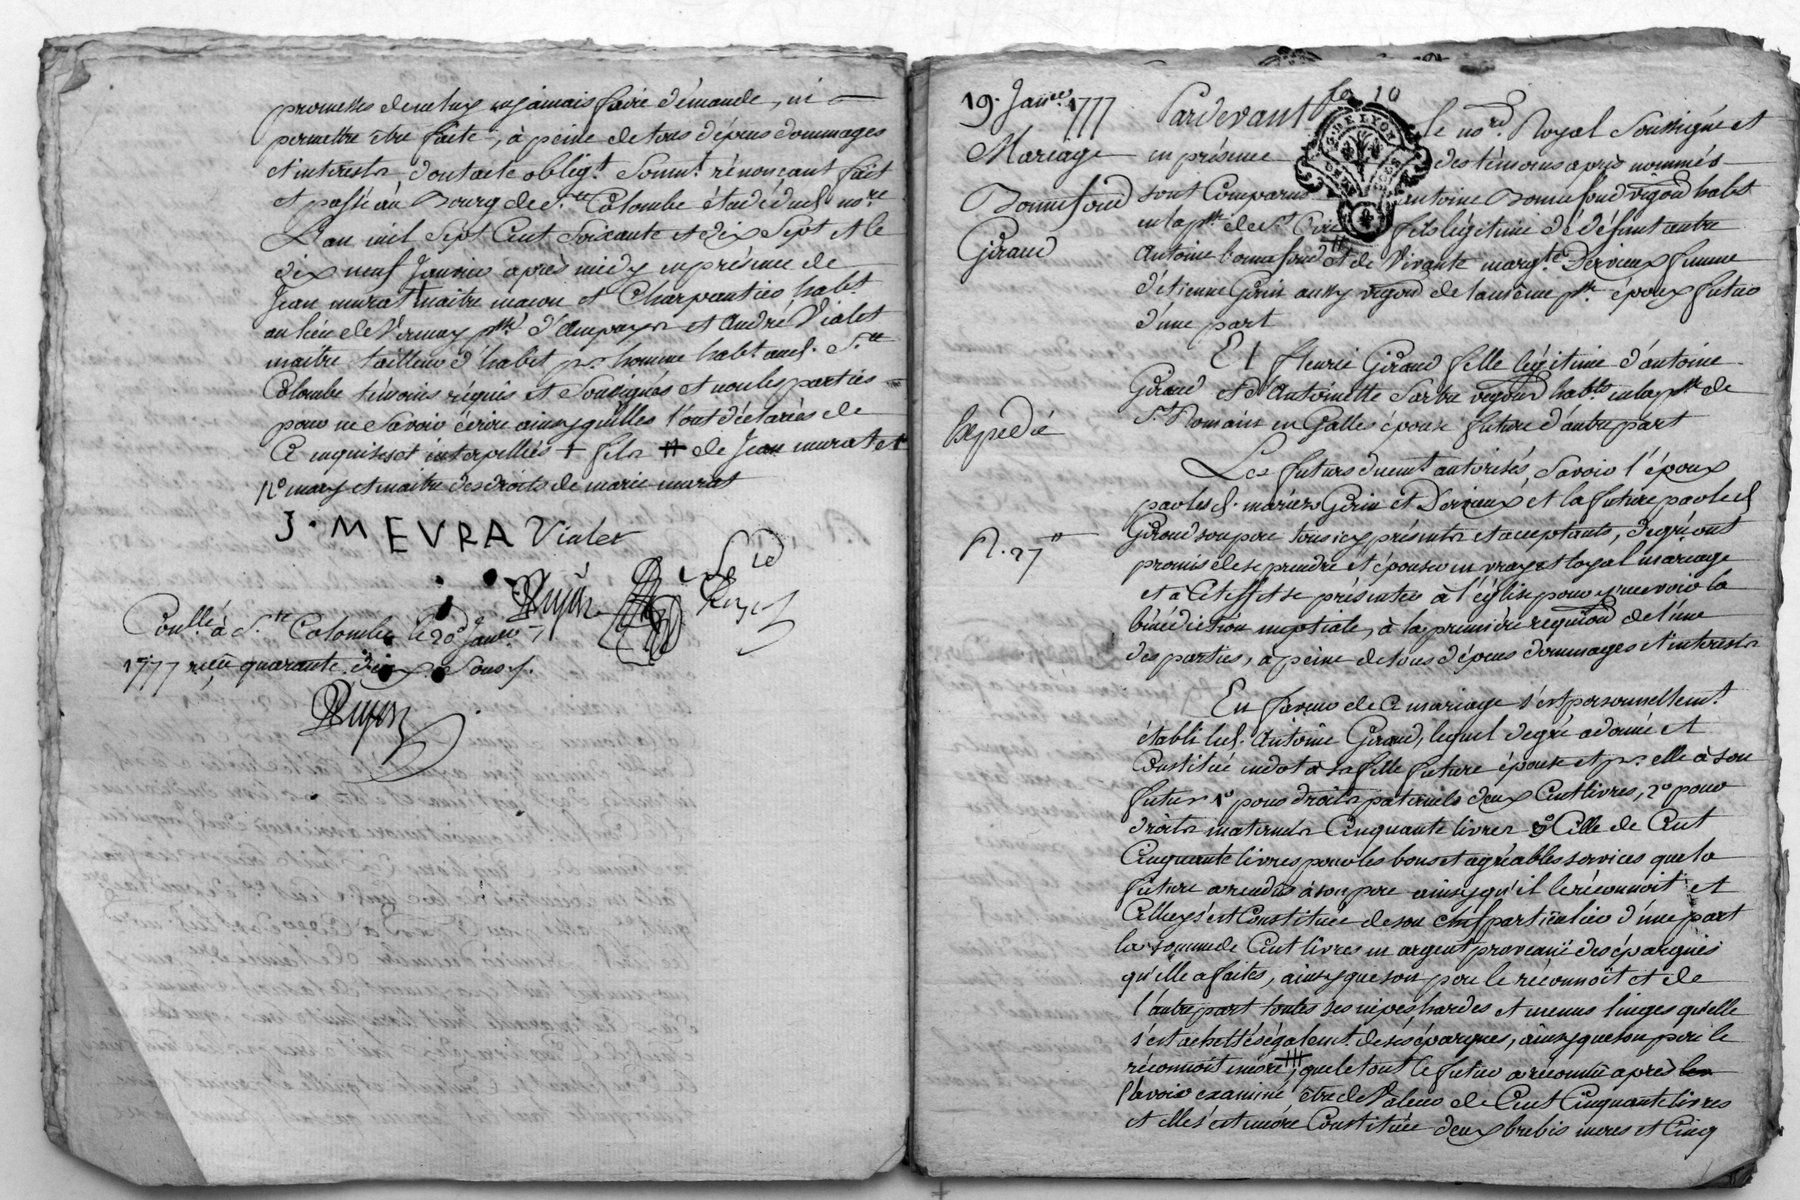 promesses de ne luy en jamais faire démande, ni
permettre être faite, à peine de tous dépens dommages
et interests dont acte obligt. Soumt. rénonçant fait
et passé au Bourg de Ste Colombe étude dud. nore
L'an mil Sept Cent Soixante et dix Sept et le
dix neuf Janvier après midy en présence de
Jean murat + maitre maçon et Charpentier habt
au lieu de Vernay psse d'Ampuys et André Vialet
maitre tailleur d'habit pr. homme habt aud. Ste
Colombe témoins réquis et Soussignés et non les parties
pour ne Savoir écrire ainsy qu'elles l'ont déclarés de
Ce enquises et interpellées + fils # de Jean murat et
n° mary et maitre des droits de marie murat
J. MEVRA Vialet
Conllé à Ste Colombe le 20 Janer
1777 reçu quarante dix Sous
19. Janer. 1777
Mariage
Bonnefond
Giraud
Expedié
Pardevant le nore. Royal Soussigné et
en présence des témoins après nommés
sont Comparus antoine Bonnefond vigon habt
en la psse de St Cir # fils légitime de défunt autre
Antoine bonnefond et de Vivante margte Dervieux femme
d'étienne Gérin aussy vigon de la même psse époux futur
d'une part
Et fleurie Giraud fille légitime d'antoine
Giraud et d'Antoinette Sartre vigon habts en la psse de
St Romain en Galles épouse future d'autre part
Les futurs duemt autorisés, Savoir l'époux
par lesd. mariés Gérin et Dervieux et la future par led
Giraud son pere tous icy présents et acceptants, de gré ont
promis de se prendre et épouser en vray et loyal mariage
et à Cet effet se présenter à l'église pour y recevoir la
bénédiction nuptiale, à la première requiôn de l'une
des parties, à peine de tous dépens dommages et interests
En faveur de Ce mariage s'est personnellemt
établi led. Antoine Giraud, lequel de gré a donné et
Constitué en dot à sa fille future épouse et pr. elle à son
futur 1° pour droits paternels deux Cent livres, 2° pour
droits maternels Cinquante livres 3° Celle de Cent
Cinquante livres pour les bons et agréables services que la
future a rendus à son pere ainsy qu'il le réconnoit et
Elle s'est Constituée de son chef particulier d'une part
la somme de Cent livres en argent provenue des épargnes
qu'elle a faites, ainsy que son pere le réconnoit et de
l'autre part toutes ses nipes hardes et menus linges qu'elle
s'est achettés égalemt. de ses épargnes, ainsy que son père le
réconnoit encore, que le tout le futur a réconnu après
l'avoir examiné être de Valeur de Cent Cinquante livres
et elle s'est encore Constituée deux brebis meres et Cinq